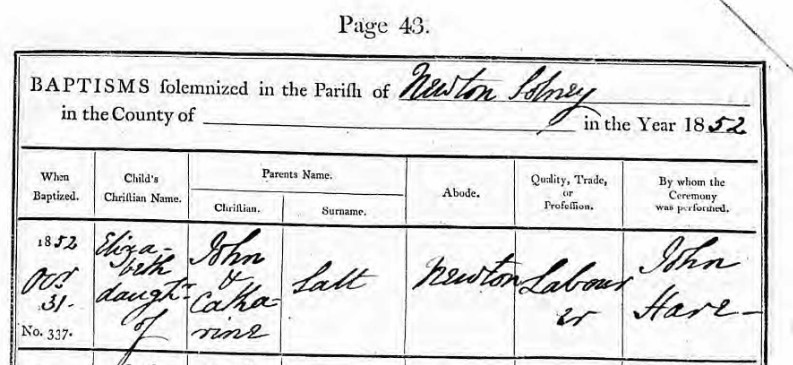 Page 43.
BAPTISMS solemnized in the Parish of Newton Solney
in the County of in the Year 1852.
When Baptized.
Child's Christian Name.
Parents Name.
Christian.
Surname.
Abode.
Quality, Trade, or Profession.
By whom the Ceremony was performed.
1852
Octr
31.
No. 337.
Eliza-
beth
daught-
of
John
&
Catha-
rine
Salt
Newton
Labour
er
John
Hare-